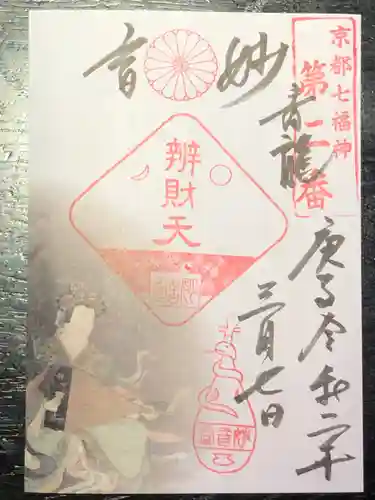 京都七福神
第二番
妙音
青龍
辨財天
庚子令和二年
三月七日